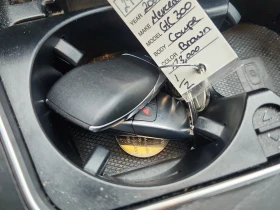 YEAR 20
MAKE Mercede
MODEL GLC 300
BODY Coupe
COLOR Brown
13,000
1/2